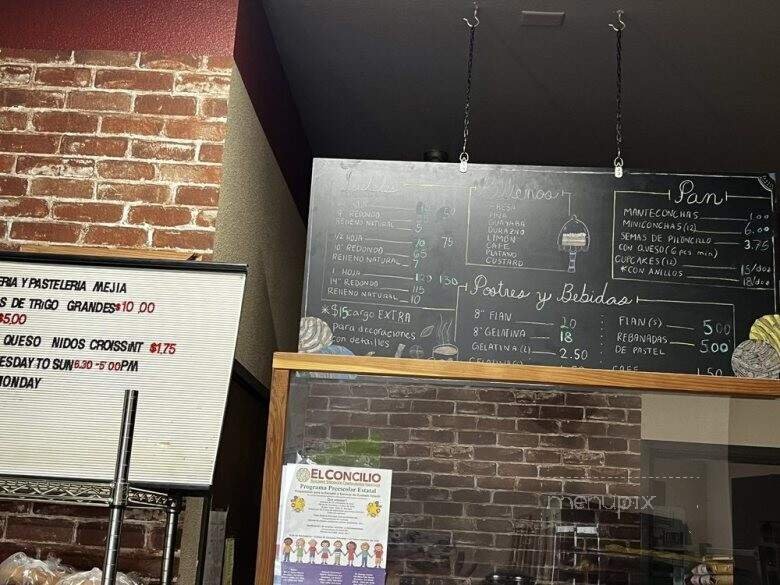 ERIA Y PASTELERIA MEJIA
S DE TRIGO GRANDES $10.00
$5.00
QUESO NIDOS CROISSINT $1.75
ESDAY TO SUN 6.30 - 5:00PM
MONDAY
9" REDONDO
RELLENO NATURAL 5
1/2 HOJA 70 75
10" REDONDO 65
RELLENO NATURAL 7
1 HOJA 120 130
14" REDONDO 115
RELLENO NATURAL 10
*$15 cargo EXTRA
para decoraciones
con detailles
Rellenos
FRESA
PIÑA
GUAYABA
DURAZNO
LIMON
CAFE
PLATANO
CUSTARD
Pan
MANTECONCHAS 1.00
MINICONCHAS (12) 6.00
SEMAS DE PILONCILLO 3.75
CON QUESO (6 pcs min)
CUPCAKES (12) 15/doz
*CON ANILLOS 18/doz
Postres y Bebidas
8" FLAN 20
8" GELATINA 18
GELATINA (L) 2.50
FLAN (S) 5.00
REBANADAS 5.00
DE PASTEL
CAFE 1.50
EL CONCILIO
Programa Preescolar Estatal
menupix